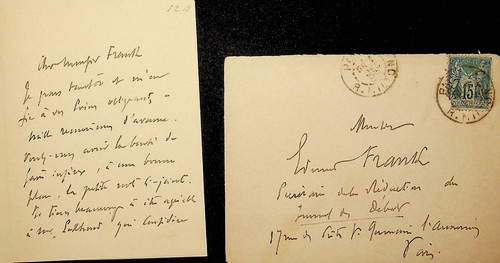 Cher Monsieur Frank
Je pars tantôt et m'en
fie à vos soins obligeants,
mille remerciements d'avance.
Voulez-vous avoir la bonté de
faire insérer, à une bonne
place, la petite note ci-jointe.
Je tiens beaucoup à être agréable
à
12
PARIS
15
PARIS
Monsieur
Frank
Secrétaire de la Rédaction du
Journal des Débats
17 rue des Prêtres St Germain l'Auxerrois
Paris